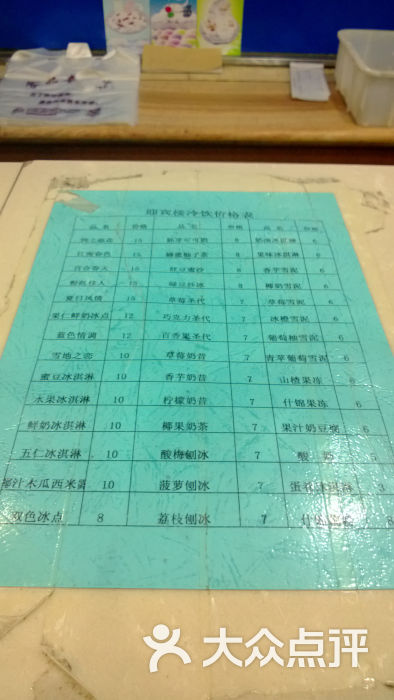 迎宾楼冷饮价格表
品 名 价格 品 名 价格 品 名 价格
15 8 奶油冰淇淋 6
江南春色 15 蜂蜜柚子茶 8 果味冰淇淋 6
百合春天 15 红豆蜜沙 8 香芋雪泥 6
15 绿豆抖冰 8 椰奶雪泥 6
夏日风情 15 草莓圣代 7 草莓雪泥 6
果仁鲜奶冰点 12 巧克力圣代 7 冰橙雪泥 6
蓝色情调 12 百香果圣代 7 葡萄柚雪泥 6
雪地之恋 10 草莓奶昔 7 青苹葡萄雪泥 6
蜜豆冰淇淋 10 香芋奶昔 7 山楂果冻 6
水果冰淇淋 10 柠檬奶昔 7 什锦果冻 6
鲜奶冰淇淋 10 椰果奶茶 7 果汁奶豆腐 6
五仁冰淇淋 10 酸梅刨冰 7 酸 奶 5
椰汁木瓜西米露 10 菠萝刨冰 7 蛋花冰淇淋 3
双色冰点 8 荔枝刨冰 7 8
大众点评
dianping.com